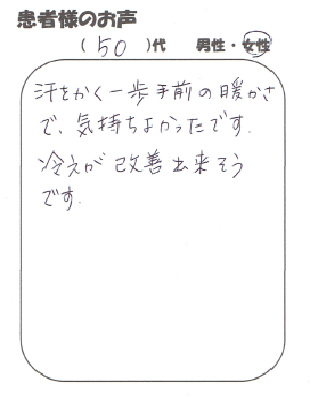 患者様のお声
(50)代 男性・女性
汗をかく一歩手前の暖かさ
で、気持ちよかったです.
冷えが改善出来そう
です.